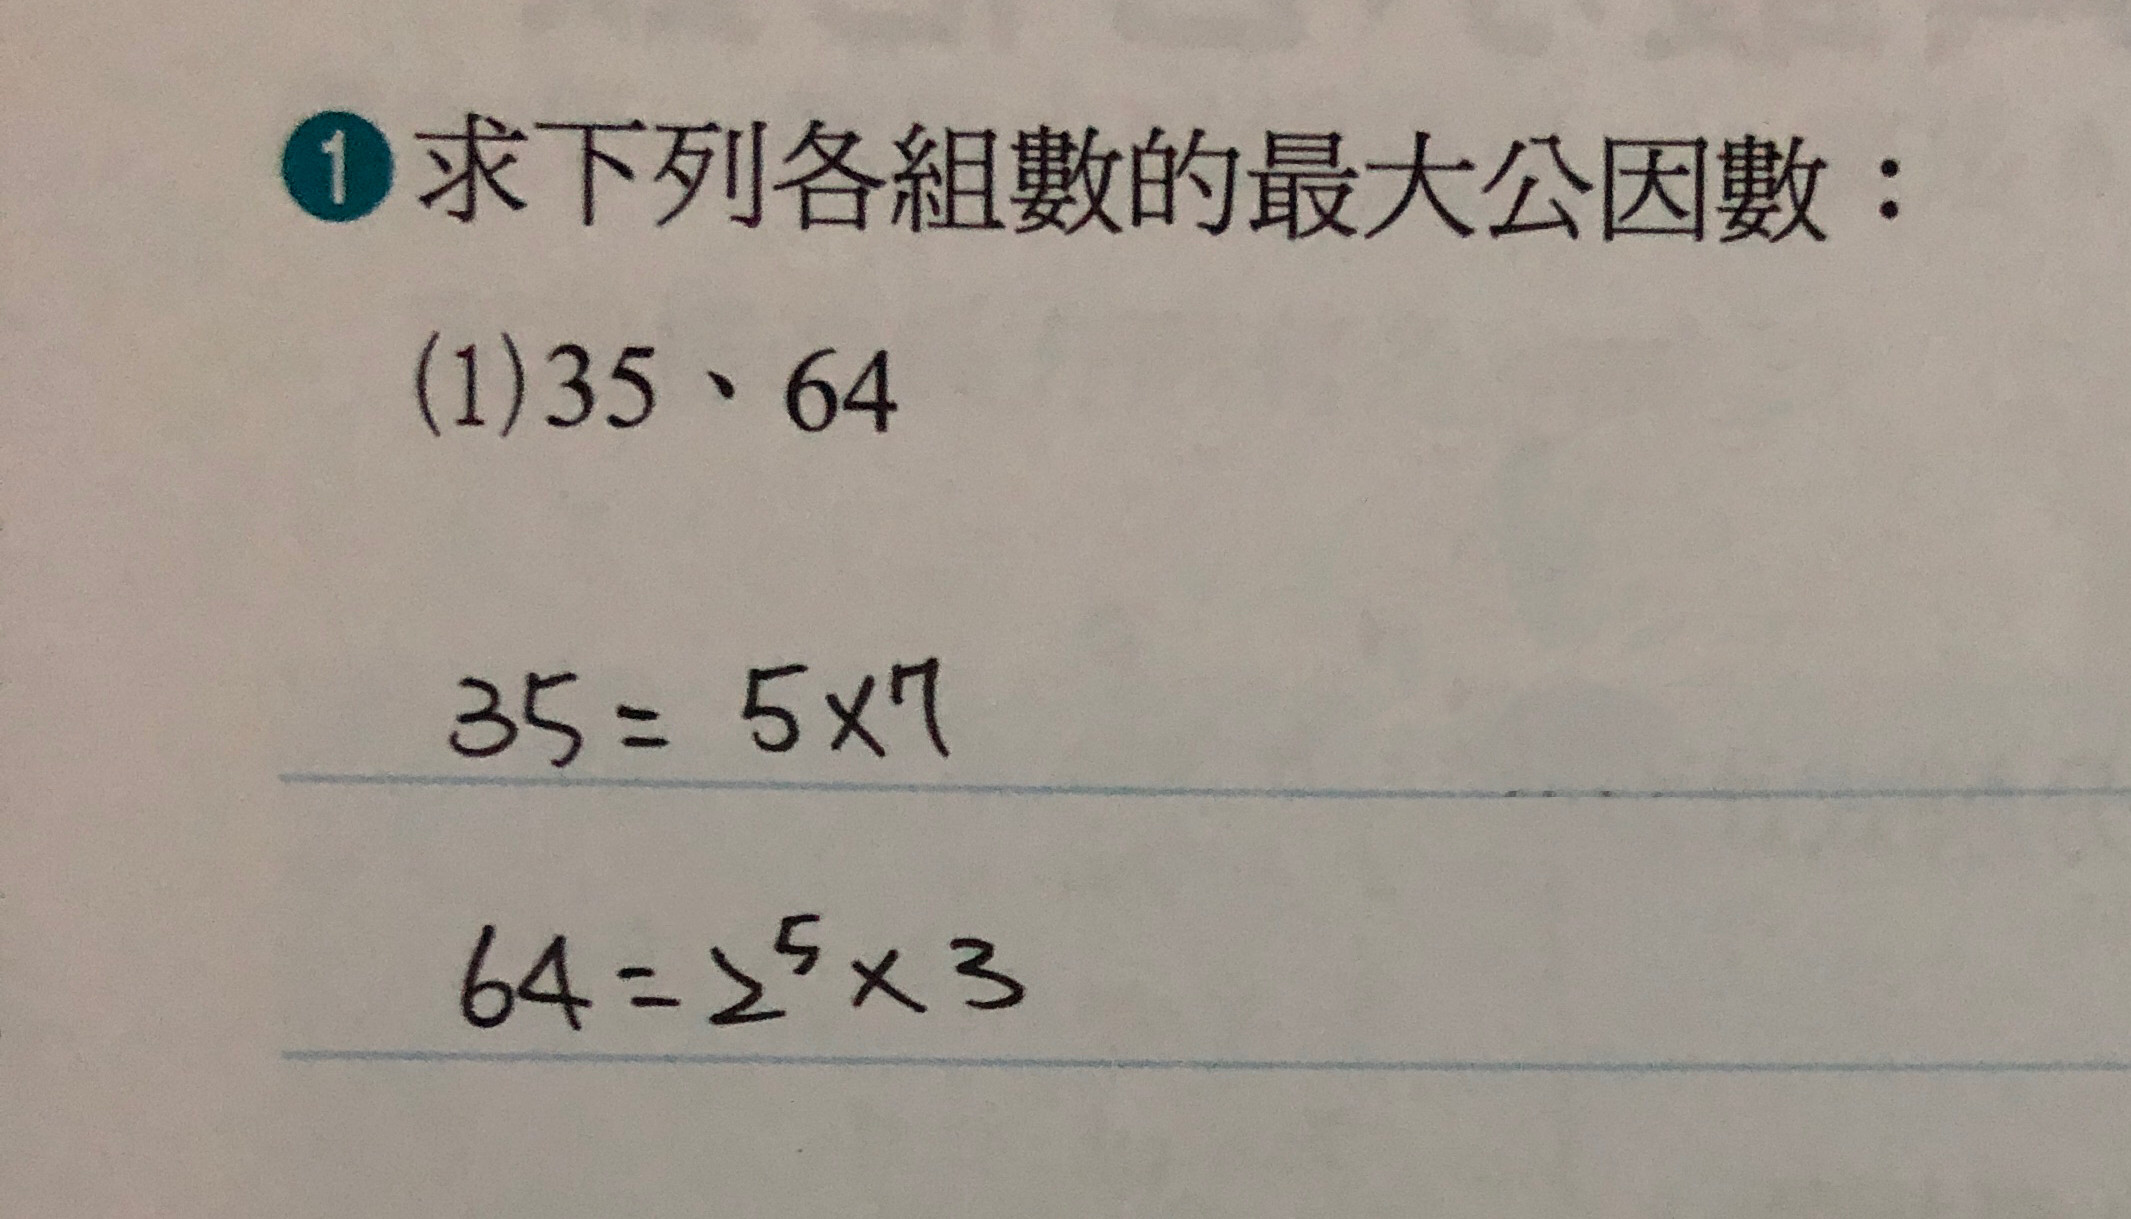 1 求下列各組數的最大公因數：
(1)35、64
35 = 5×7
64 = 2⁵ × 3